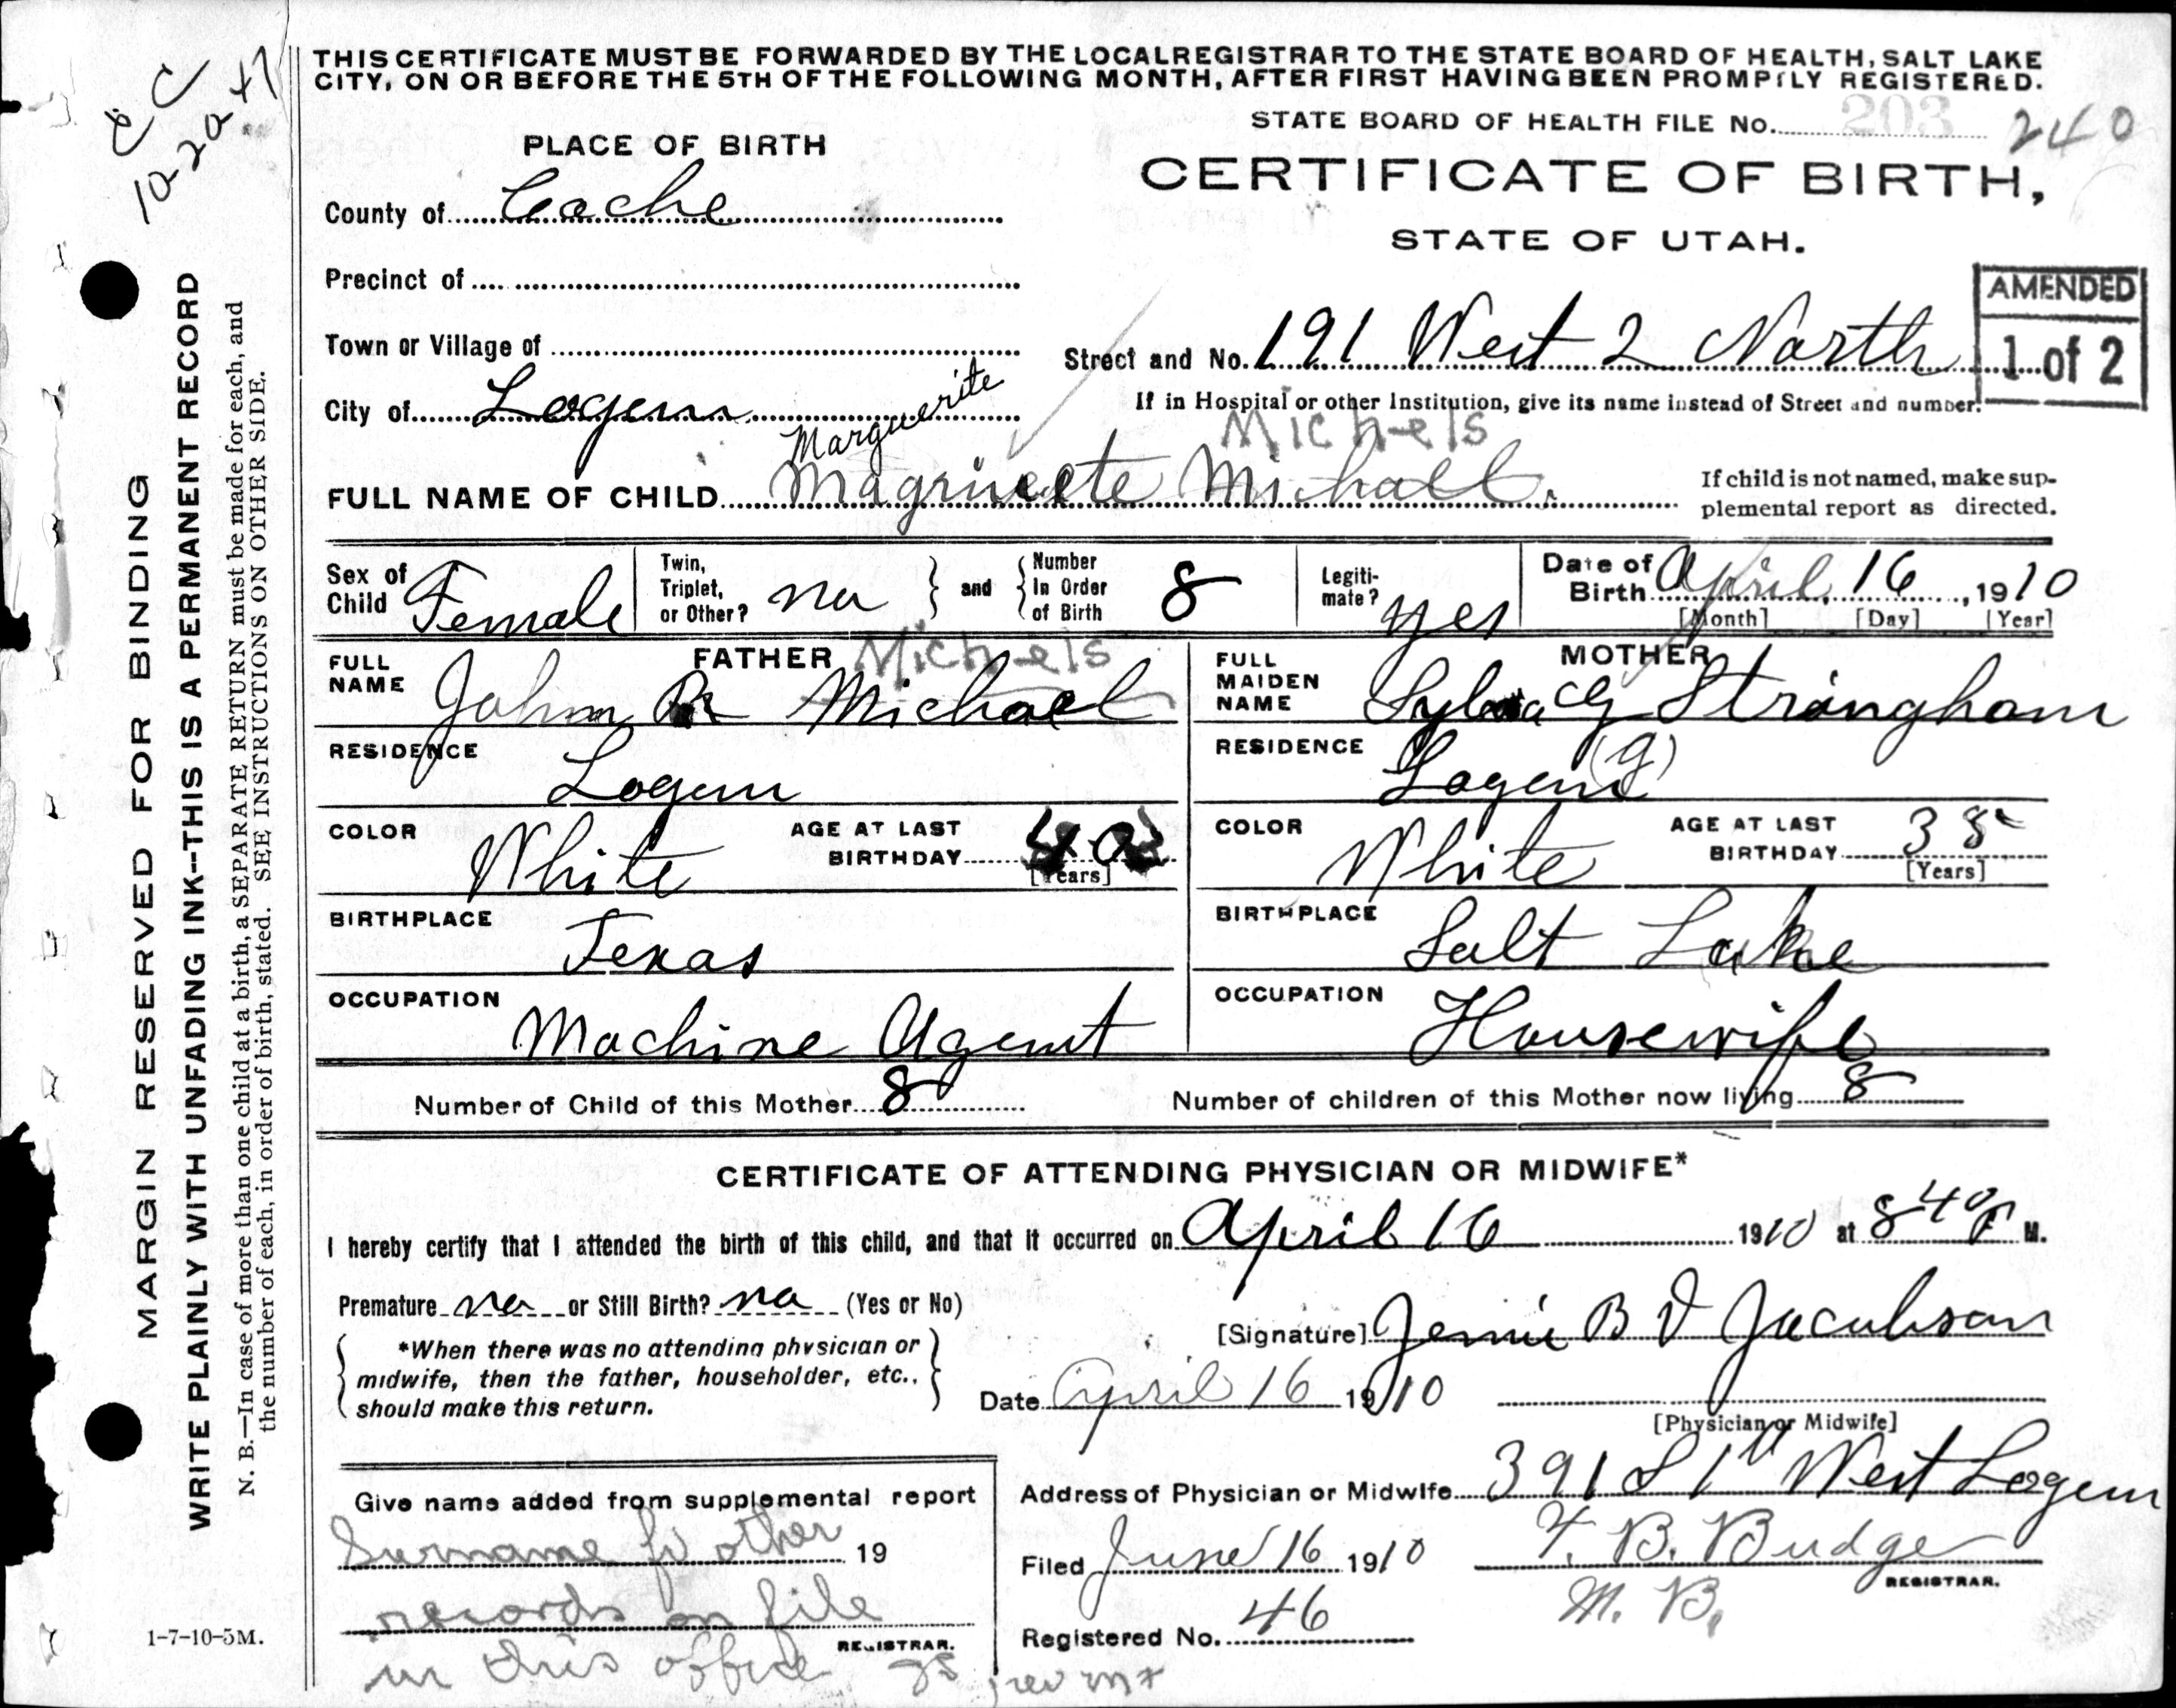 THIS CERTIFICATE MUST BE FORWARDED BY THE LOCAL REGISTRAR TO THE STATE BOARD OF HEALTH, SALT LAKE
CITY, ON OR BEFORE THE 5TH OF THE FOLLOWING MONTH, AFTER FIRST HAVING BEEN PROMPTLY REGISTERED.
STATE BOARD OF HEALTH FILE No. 203 240
PLACE OF BIRTH
CERTIFICATE OF BIRTH,
STATE OF UTAH.
County of Cache
Precinct of
Town or Village of
City of Logan
Street and No. 191 West 2 North
If in Hospital or other Institution, give its name instead of Street and number.
AMENDED
1 of 2
Marguerite
Michels
FULL NAME OF CHILD Magrueete Michall.
If child is not named, make sup-
plemental report as directed.
Sex of Child Female
Twin, Triplet, or Other? no
and Number In Order of Birth 8
Legiti-mate? yes
Date of Birth April 16, 1910
[Month] [Day] [Year]
FATHER
Michels
FULL NAME John R Michael
RESIDENCE Logan
COLOR White
AGE AT LAST BIRTHDAY 40
[Years]
BIRTHPLACE Texas
OCCUPATION Machine Agent
MOTHER
FULL MAIDEN NAME Sylvia G Stringham
(G)
RESIDENCE Logan
COLOR White
AGE AT LAST BIRTHDAY 38
[Years]
BIRTHPLACE Salt Lake
OCCUPATION Housewife
Number of Child of this Mother 8
Number of children of this Mother now living 8
CERTIFICATE OF ATTENDING PHYSICIAN OR MIDWIFE*
I hereby certify that I attended the birth of this child, and that it occurred on April 16 1910 at 8 40 P M.
Premature no or Still Birth? no (Yes or No)
*When there was no attending physician or
midwife, then the father, householder, etc.,
should make this return.
[Signature] Jennie B V Jacobson
Date April 16 1910
[Physician or Midwife]
Address of Physician or Midwife 391 S 1st West Logan
Filed June 16 1910
F. B. Budge
REGISTRAR.
M. B.
Registered No. 46
Give name added from supplemental report
Surname fr other 19
records on file
REGISTRAR.
in this office
1-7-10-5M.
MARGIN RESERVED FOR BINDING
WRITE PLAINLY WITH UNFADING INK--THIS IS A PERMANENT RECORD
N. B.—In case of more than one child at a birth, a SEPARATE RETURN must be made for each, and
the number of each, in order of birth, stated. SEE INSTRUCTIONS ON OTHER SIDE.